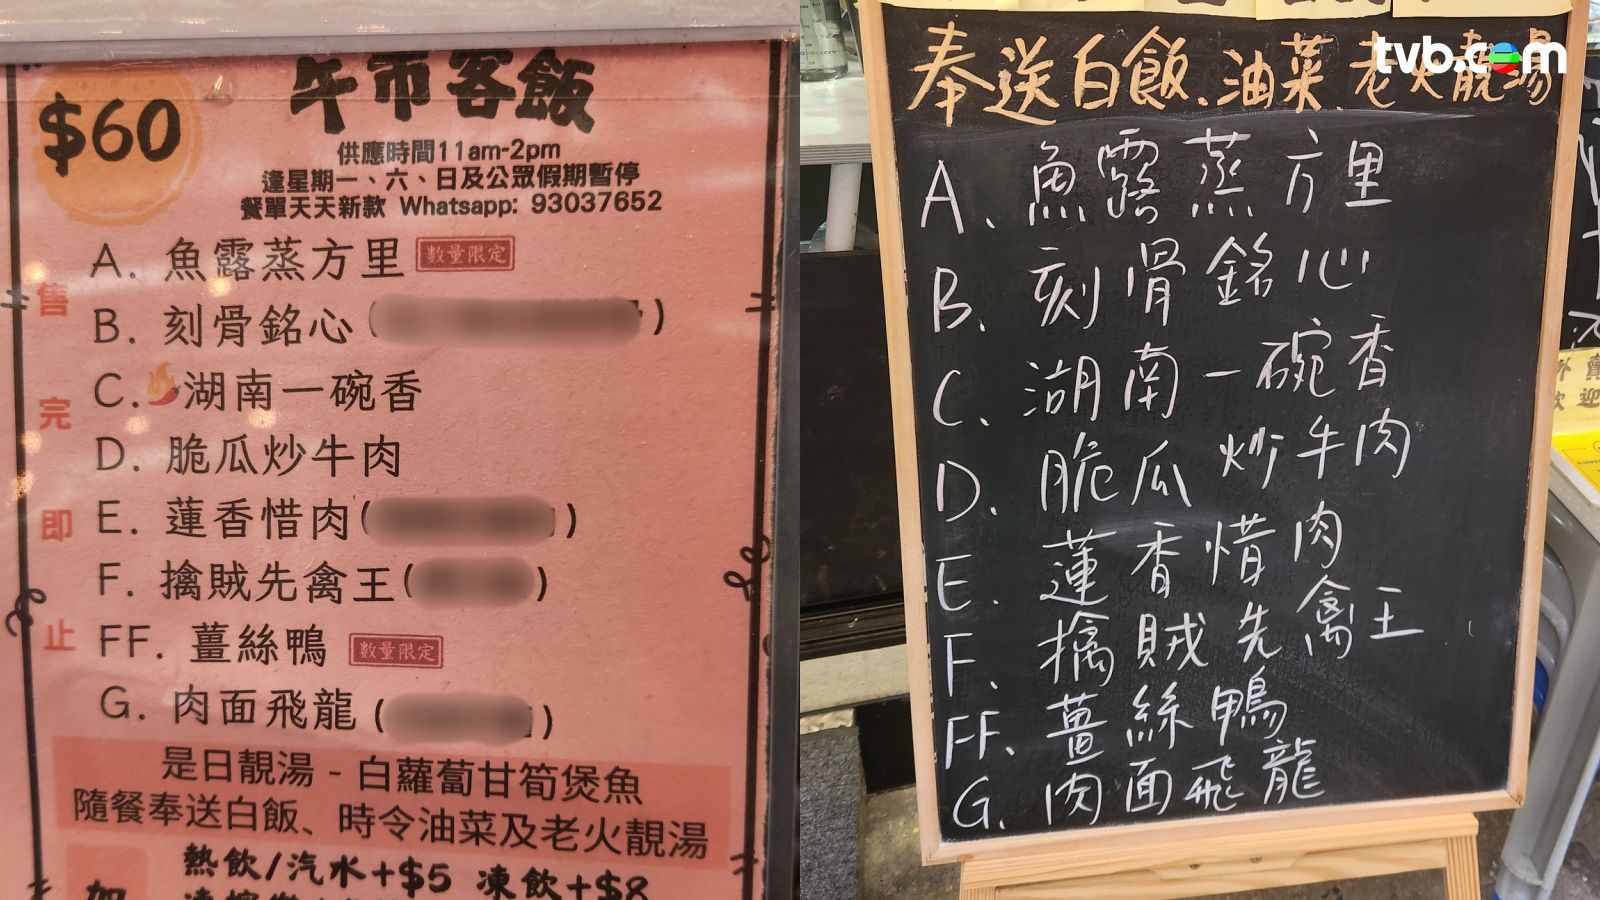 $60
午市客飯
供應時間11am-2pm
逢星期一、六、日及公眾假期暫停
餐單天天新款 Whatsapp: 93037652
A. 魚露蒸方里 數量限定
B. 刻骨銘心 ( )
C. 湖南一碗香
D. 脆瓜炒牛肉
E. 蓮香惜肉( )
F. 擒賊先禽王( )
FF. 薑絲鴨 數量限定
G. 肉面飛龍 ( )
售完即止
是日靚湯 - 白蘿蔔甘筍煲魚
隨餐奉送白飯、時令油菜及老火靚湯
熱飲/汽水+$5 凍飲+$8
加
tvb.com
奉送白飯、油菜、老火靚湯
A. 魚露蒸方里
B. 刻骨銘心
C. 湖南一碗香
D. 脆瓜炒牛肉
E. 蓮香惜肉
F. 擒賊先禽王
FF. 薑絲鴨
G. 肉面飛龍